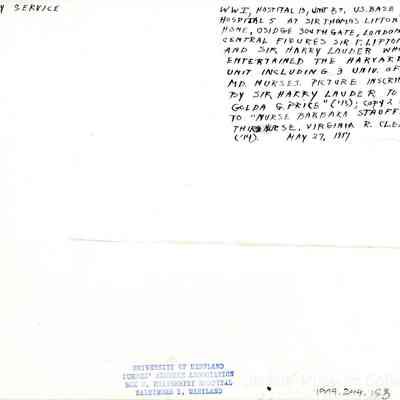 Y SERVICE
WWI, HOSPITAL 13, UNIT B7. U.S. BASE
HOSPITAL 5 AT SIR THOMAS LIPTON'
HOME, OSIDGE SOUTHGATE, LONDON
CENTRAL FIGURES SIR T. LIPTON
AND SIR HARRY LAUDER WHO
ENTERTAINED THE HARVARD
UNIT INCLUDING 3 UNIV. OF
MD. NURSES. PICTURE INSCRI
BY SIR HARRY LAUDER TO
GOLDA G. PRICE" ('13); COPY 2
TO "NURSE BARBARA STOUFF
THIRD NURSE, VIRGINIA R. CLE
('14). MAY 27, 1917
UNIVERSITY OF MARYLAND
NURSES' ALUMNAE ASSOCIATION
BOX 2, UNIVERSITY HOSPITAL
BALTIMORE 1, MARYLAND